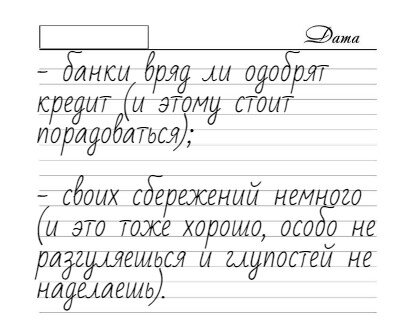 Дата
- банки вряд ли одобрят
кредит (и этому стоит
порадоваться);
- своих сбережений немного
(и это тоже хорошо, особо не
разгуляешься и глупостей не
наделаешь).